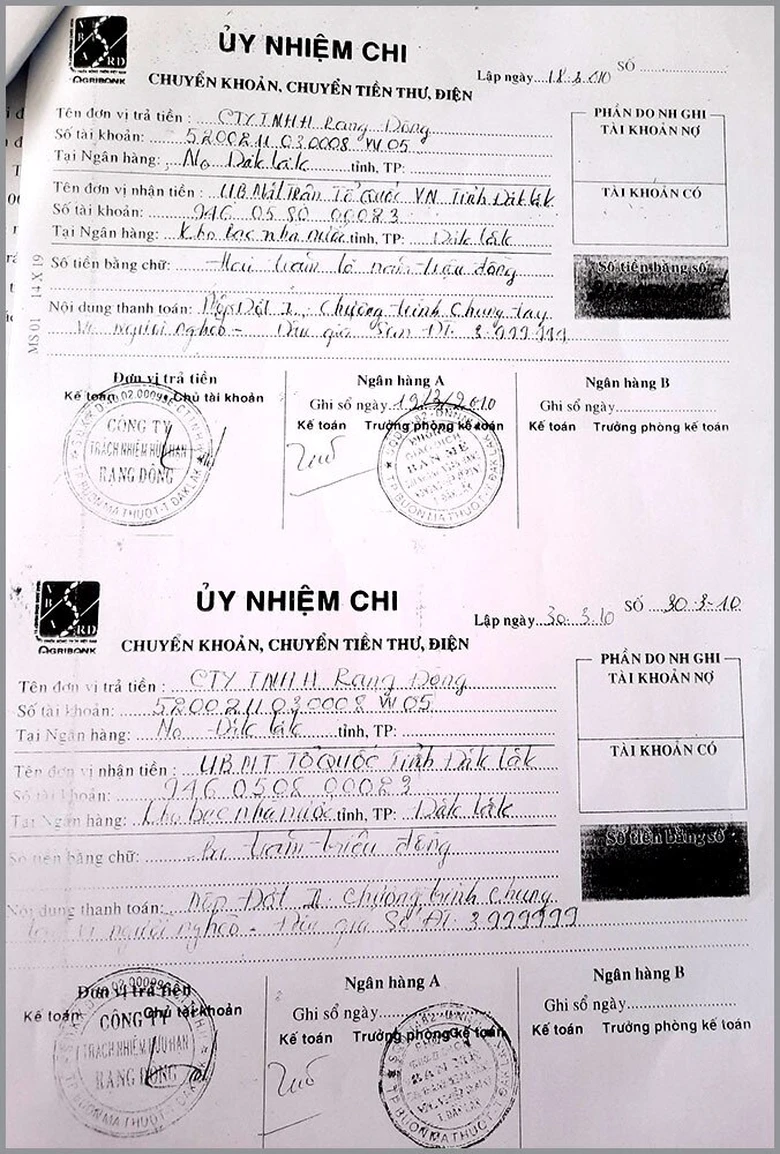 ỦY NHIỆM CHI
CHUYỂN KHOẢN, CHUYỂN TIỀN THƯ, ĐIỆN
Lập ngày 18.3.010
SỐ
AGRIBANK
Tên đơn vị trả tiền : CTY TNHH Rạng Đông
Số tài khoản: 5200211030008 W 05
Tại Ngân hàng: No Đắk lắk tỉnh, TP:
Tên đơn vị nhận tiền : UB Mặt Trận Tổ Quốc VN Tỉnh Đắk lắk
Số tài khoản: 946 05 80 00083
Tại Ngân hàng: Kho bạc nhà nước tỉnh, TP: Đắk lắk
Số tiền bằng chữ: Hai trăm lẻ năm triệu đồng
Nội dung thanh toán: Nộp Đợt I. Chương trình Chung tay
Vì người nghèo - Đấu giá Sim ĐT. 3.999999
PHẦN DO NH GHI
TÀI KHOẢN NỢ
TÀI KHOẢN CÓ
Số tiền bằng số
MS 01 14 X 19
Đơn vị trả tiền
Kế toán Chủ tài khoản
CÔNG TY
TRÁCH NHIỆM HỮU HẠN
RẠNG ĐÔNG
TP BUÔN MA THUỘT-T ĐAKLAK
Ngân hàng A
Ghi sổ ngày 19/3/2010
Kế toán Trưởng phòng kế toán
BAN MÊ
Ngân hàng B
Ghi sổ ngày
Kế toán Trưởng phòng kế toán
ỦY NHIỆM CHI
CHUYỂN KHOẢN, CHUYỂN TIỀN THƯ, ĐIỆN
Lập ngày 30.3.10
SỐ 30-3-10
AGRIBANK
Tên đơn vị trả tiền : CTY TNHH Rạng Đông
Số tài khoản: 5200211030008 W 05
Tại Ngân hàng: No Đắk lắk tỉnh, TP:
Tên đơn vị nhận tiền : UB MT TỔ QUỐC Tỉnh Đắk lắk
Số tài khoản: 946 0508 00083
Tại Ngân hàng: Kho bạc nhà nước tỉnh, TP: Đắk lắk
Số tiền bằng chữ: Ba trăm triệu đồng
Nội dung thanh toán: Nộp Đợt II. Chương trình Chung
tay Vì người nghèo - Đấu giá Số ĐT. 3.999999
PHẦN DO NH GHI
TÀI KHOẢN NỢ
TÀI KHOẢN CÓ
Số tiền bằng số
Đơn vị trả tiền
Kế toán Chủ tài khoản
CÔNG TY
TRÁCH NHIỆM HỮU HẠN
RẠNG ĐÔNG
TP BUÔN MA THUỘT-T ĐAKLAK
Ngân hàng A
Ghi sổ ngày
Kế toán Trưởng phòng kế toán
BAN MÊ
Ngân hàng B
Ghi sổ ngày
Kế toán Trưởng phòng kế toán